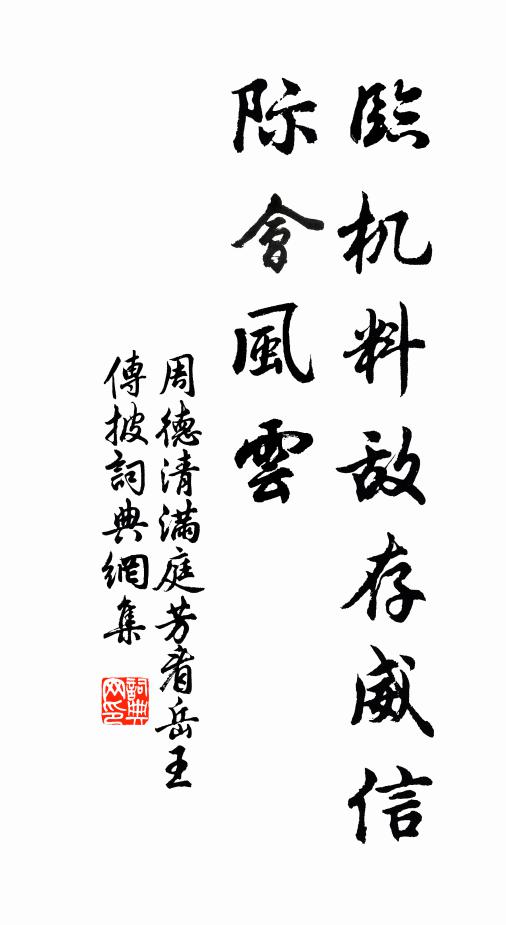 臨机料敌存威信
际會風雲
周德清滿庭芳看岳王
傳披詞典網集
詞典
网印